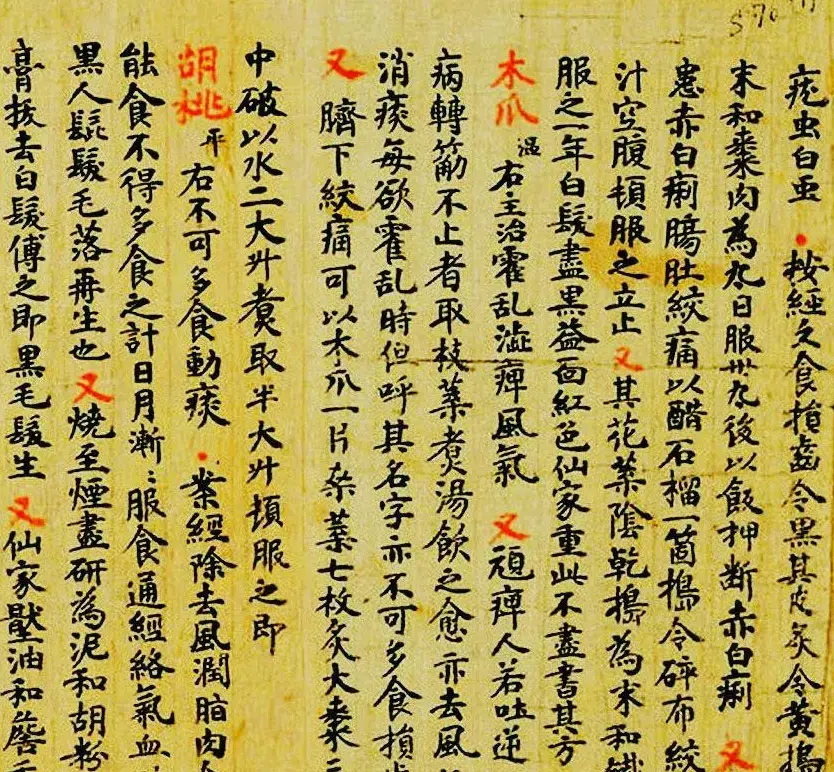 S 76
疣虫白虫・按經久食損齒令黑其皮炙令黃搗
末和棗肉為丸日服卅丸後以飯押斷赤白痢 又
患赤白痢腸肚絞痛以醋石榴一箇搗令碎布絞
汁空腹頓服之立止 又其花葉陰乾搗為末和鐵
服之一年白髮盡黑益面紅色仙家重此不盡書其方
木瓜 溫 右主治霍乱澁痺風氣 又頑痺人若吐逆
病轉筋不止者取枝葉煮湯飲之愈亦去風
消痰每欲霍乱時但呼其名字亦不可多食損
又臍下絞痛可以木瓜一片桒葉七枚炙大棗
中破以水二大升煮取半大升頓服之即
胡桃 平 右不可多食動痰・案經除去風潤脂肉
能食不得多食之計日月漸〻服食通經絡氣血
黑人髭髮毛落再生也 又燒至煙盡研為泥和胡粉
膏拔去白髮傅之即黑毛髮生 又仙家壓油和詹